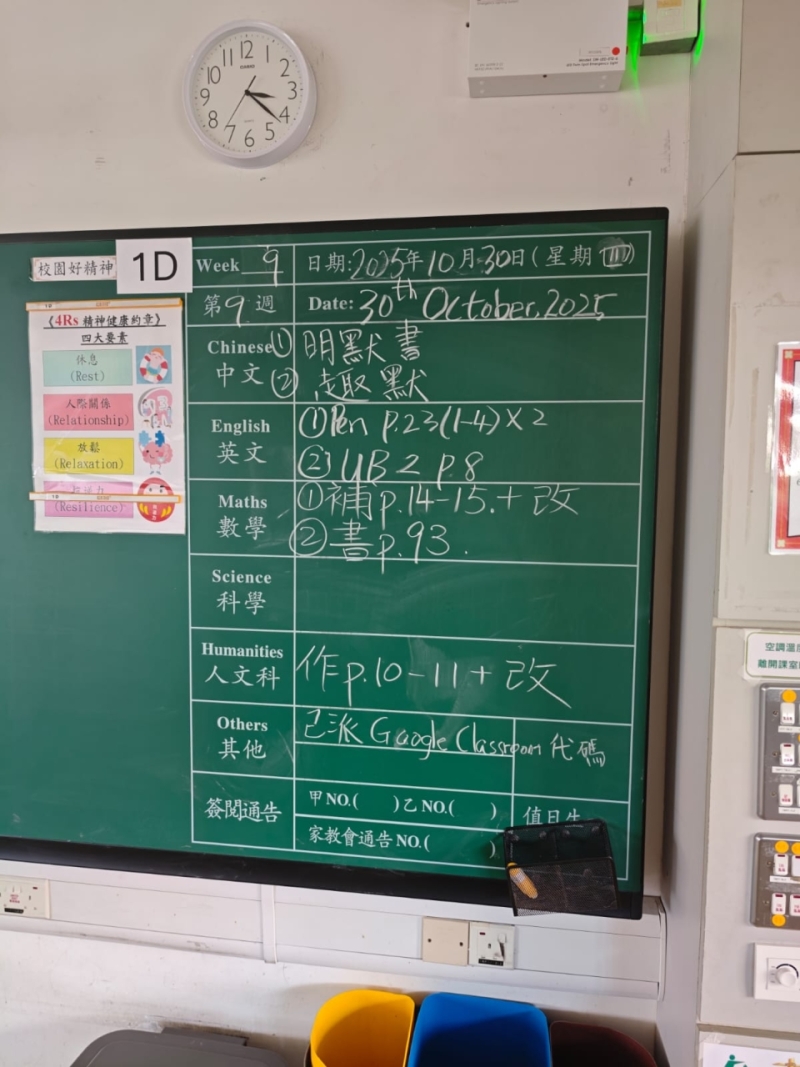 12 1 2 3 4 5 6 7 8 9 10 11
校園好精神
1D
《4Rs 精神健康約章》
四大要素
休息
(Rest)
人際關係
(Relationship)
放鬆
(Relaxation)
(Resilience)
Week 9 日期:2025年10月30日(星期四)
第9週 Date: 30th October, 2025
Chinese ① 明默書
中文 ② 趣默
English ① Pen p.23(1-4)×2
英文 ② UB 2 p.8
Maths ① 補p.14-15.+改
數學 ② 書p.93.
Science
科學
Humanities 作p.10-11+改
人文科
Others 已派 Google Classroom 代碼
其他
簽閱通告 甲NO.( )乙NO.( ) 值日生
家教會通告NO.( )
空調溫
離開課室